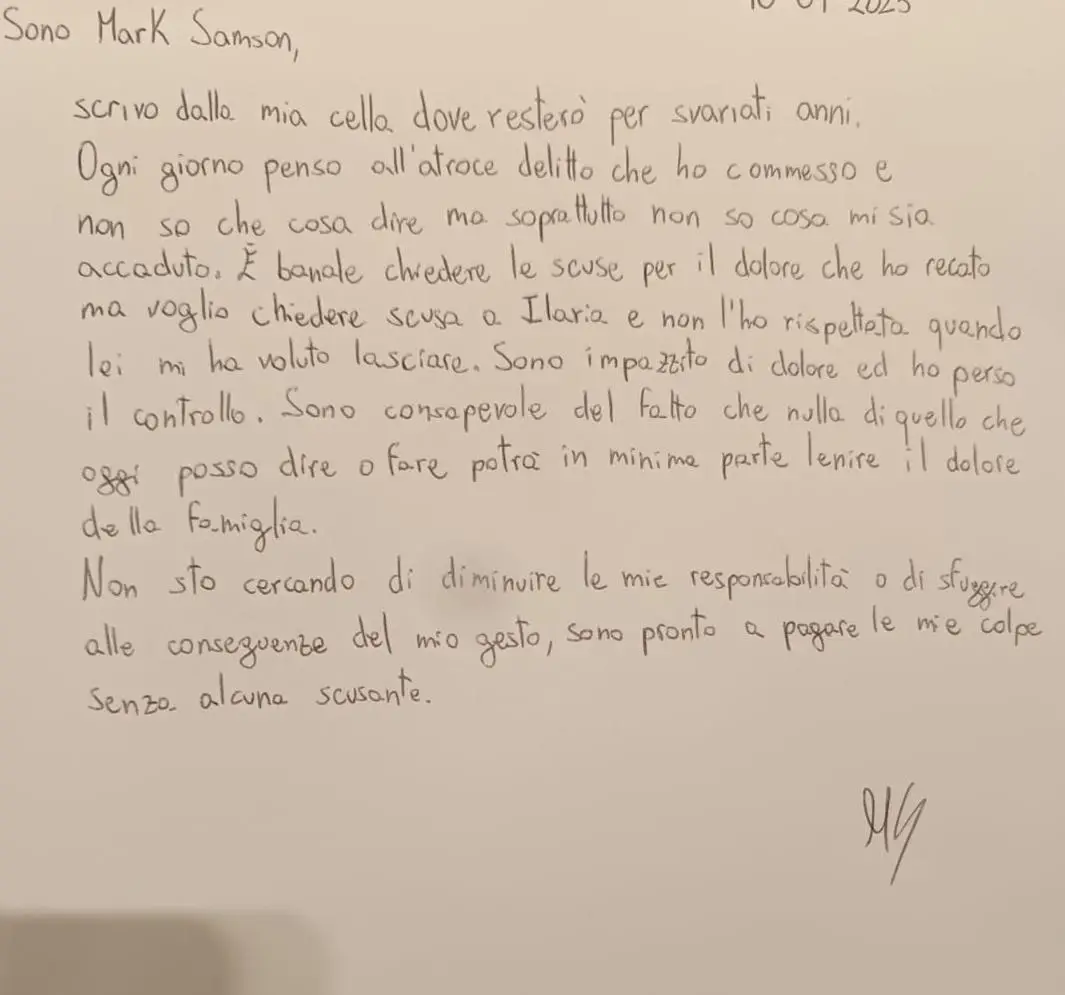 2025
Sono Mark Samson,
scrivo dalla mia cella dove resterò per svariati anni.
Ogni giorno penso all'atroce delitto che ho commesso e
non so che cosa dire ma soprattutto non so cosa mi sia
accaduto. È banale chiedere le scuse per il dolore che ho recato
ma voglio chiedere scusa a Ilaria e non l'ho rispettata quando
lei mi ha voluto lasciare. Sono impazzito di dolore ed ho perso
il controllo. Sono consapevole del fatto che nulla di quello che
oggi posso dire o fare potrà in minima parte lenire il dolore
della famiglia.
Non sto cercando di diminuire le mie responsabilità o di sfuggire
alle conseguenze del mio gesto, sono pronto a pagare le mie colpe
senza alcuna scusante.
MS